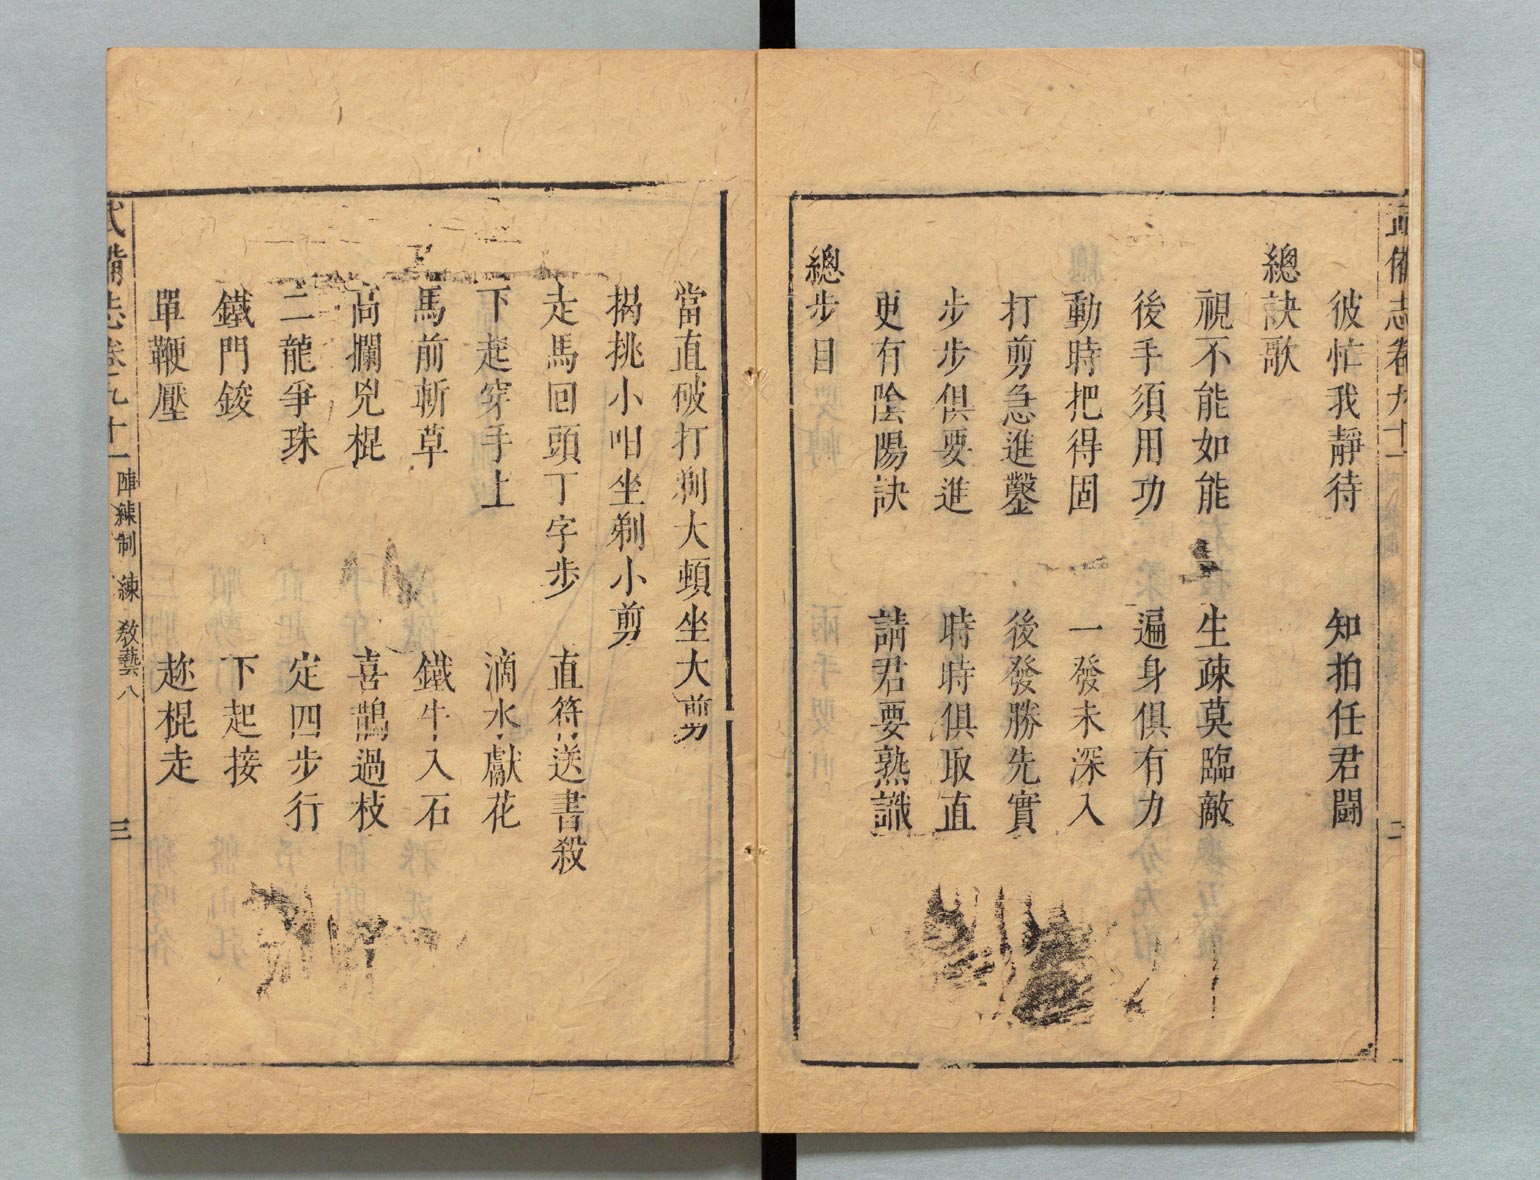 武備志卷九十一 二
彼忙我靜待 知拍任君鬪
總訣歌
視不能如能 生疎莫臨敵
後手須用功 遍身俱有力
動時把得固 一發未深入
打剪急進鑿 後發勝先實
步步俱要進 時時俱取直
更有陰陽訣 請君要熟識
總步目
當直破打剃大頓坐大剪
揭挑小呾坐剃小剪
走馬回頭丁字步 直符送書殺
下起穿手上 滴水獻花
馬前斬草 鐵牛入石
高攔兇棍 喜鵲過枝
二龍爭珠 定四步行
鐵門鋑 下起接
單鞭壓 趂棍走
武備志卷九十一 陣練制 練 敎藝八 三